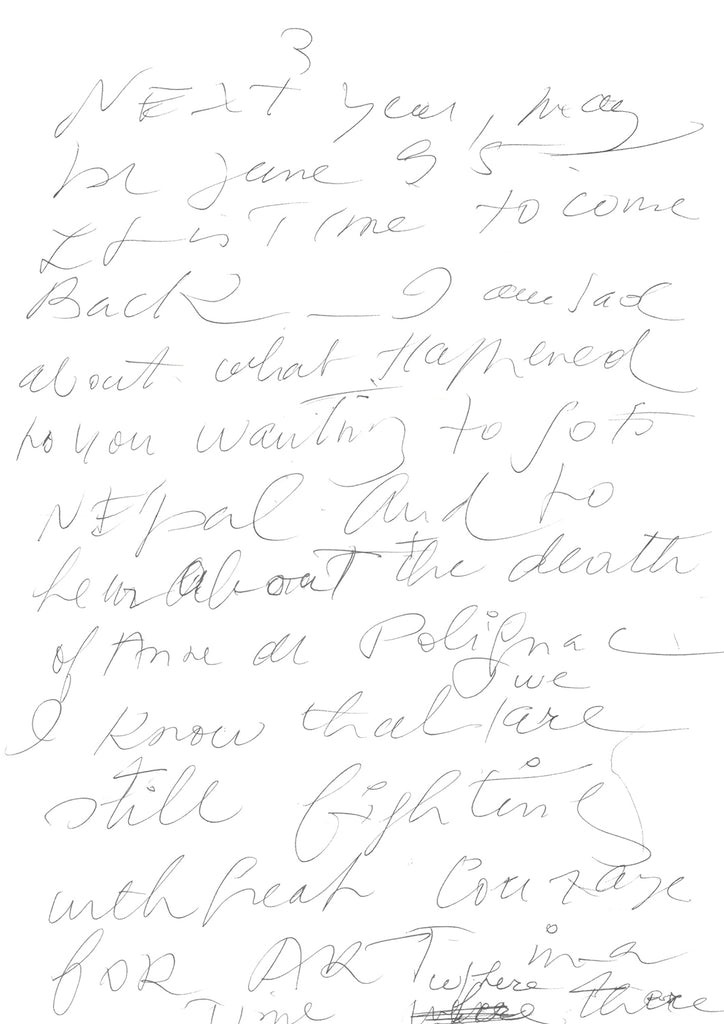 3
NEXT year, may
be June 95 -
It is Time to come
Back _ I am sad
about what Happened
to you wanting to go to
NEpal And to
hear about the death
of Anne de Polignac
we
I know that / are
still fighting
with great Courage
FOR ART in a
Time where there